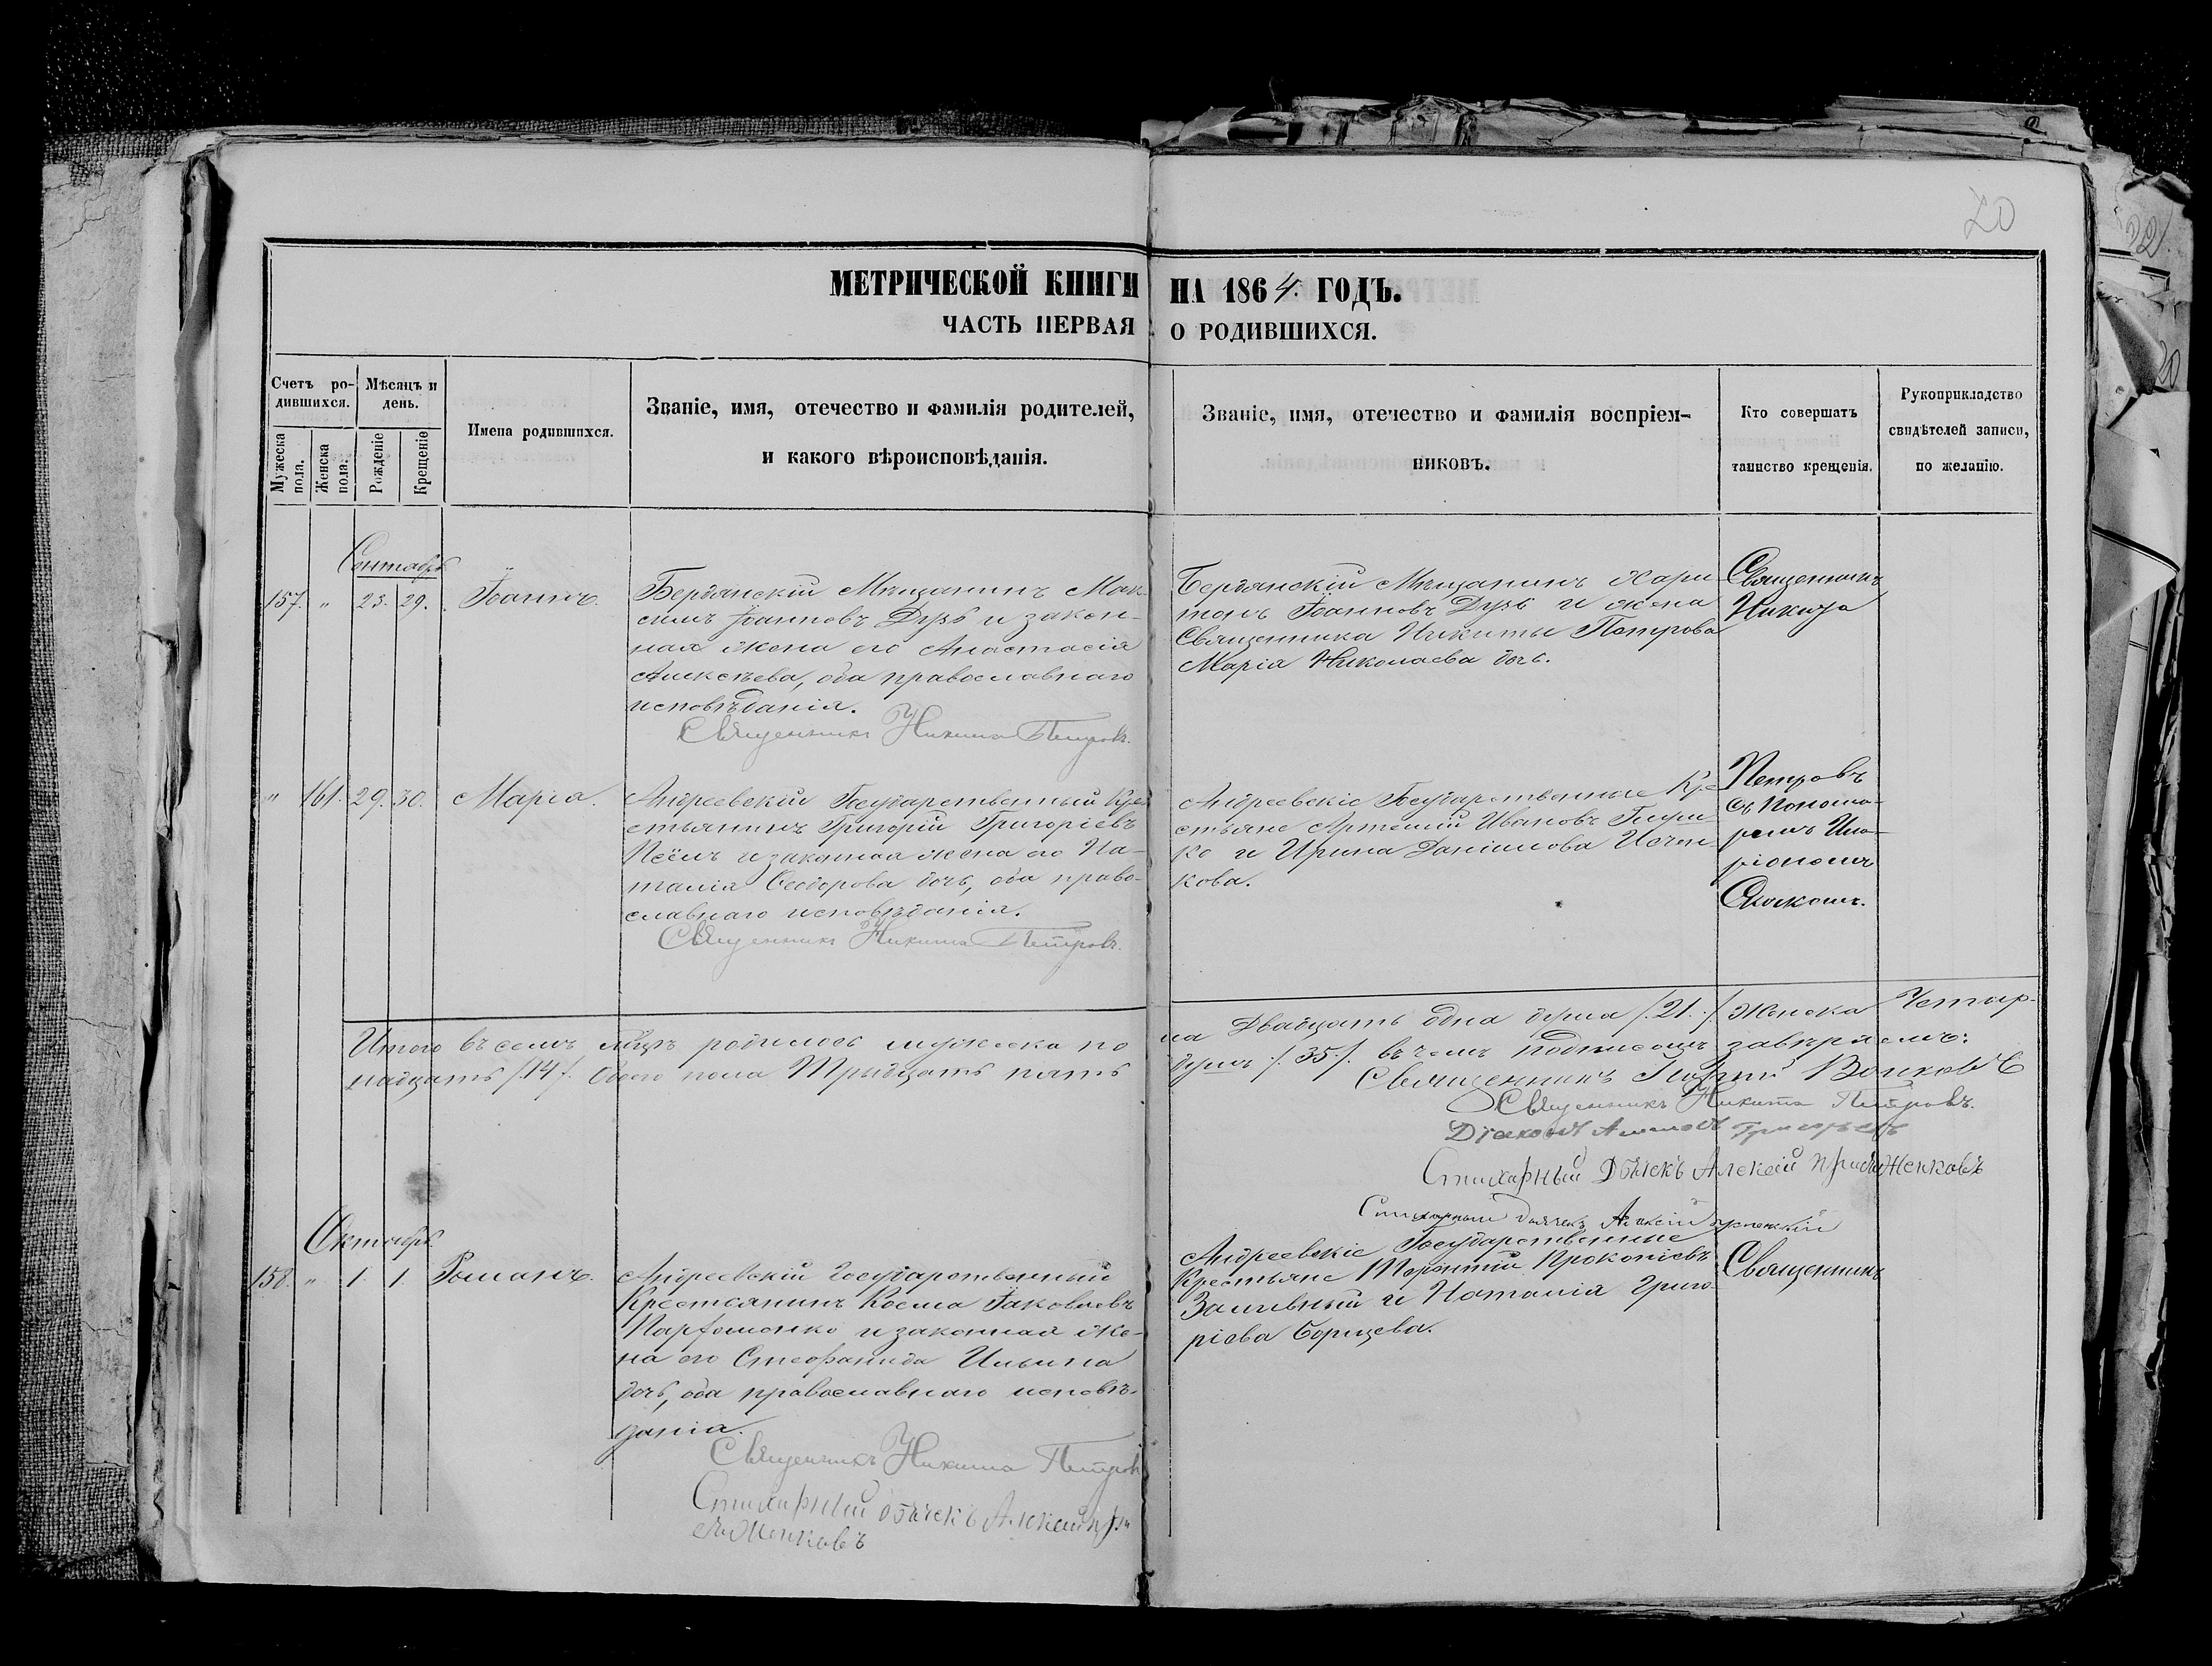 20
МЕТРИЧЕСКОЙ КНИГИ НА 1864. ГОДЪ.
ЧАСТЬ ПЕРВАЯ О РОДИВШИХСЯ.
Счетъ ро-
дившихся.
Мужеска пола.
Женска пола.
Мѣсяцъ и
день.
Рожденіе
Крещеніе
Имена родившихся.
Званіе, имя, отечество и фамилія родителей,
и какого вѣроисповѣданія.
Званіе, имя, отечество и фамилія воспріем-
никовъ.
Кто совершатъ
таинство крещенія.
Рукоприкладство
свидѣтелей записи,
по желанію.
Сентябрь
157. " 23. 29. Іоаннъ.
Бердянскій Мѣщанинъ Мак-
симъ Іоанновъ Дузь и закон-
ная жена его Анастасія
Алексѣева, оба православнаго
исповѣданія.
Священникъ Никита Петровъ.
Бердянскій Мѣщанинъ Хари-
тонъ Іоанновъ Дузь и жена
Священника Никиты Петрова
Марія Николаева дочь.
Священникъ
Никита
" 161. 29. 30. Марія.
Андреевскій Государственный Кре-
стьянинъ Григорій Григоріевъ
и законная жена его На-
талія Ѳеодорова дочь, оба право-
славнаго исповѣданія.
Священникъ Никита Петровъ.
Андреевскіе Государственные Кре-
стьяне Артемій Ивановъ
и Ирина Даніилова
кова.
Петровъ
съ Понома-
ремъ Ила-
ріономъ
Итого въ семъ м-цѣ родилось мужеска по-
ла Двадцать одна душа /.21./ Женска Четыр-
надцать /.14/. Обоего пола Тридцать пять
душъ /.35./. въ чемъ подписомъ завѣряемъ:
Священникъ Георгій Волковъ
Священникъ Никита Петровъ.
Діаконъ Григорьевъ
Стихарный Дьячекъ Алексій
Стихарный дьячекъ Алексій
Октябрь
158. " 1. 1. Романъ.
Андреевскій Государственный
Крестьянинъ Косма Іаковлевъ
Парфоменко и законная же-
на его Стефанида Ильина
дочь, оба православнаго исповѣ-
данія.
Священникъ Никита Петровъ
Стихарный дьячекъ Алексій
Андреевскіе Государственные
Крестьяне Терентій Прокопіевъ
Заливный и Наталія Григо-
ріева Борщева.
Священникъ